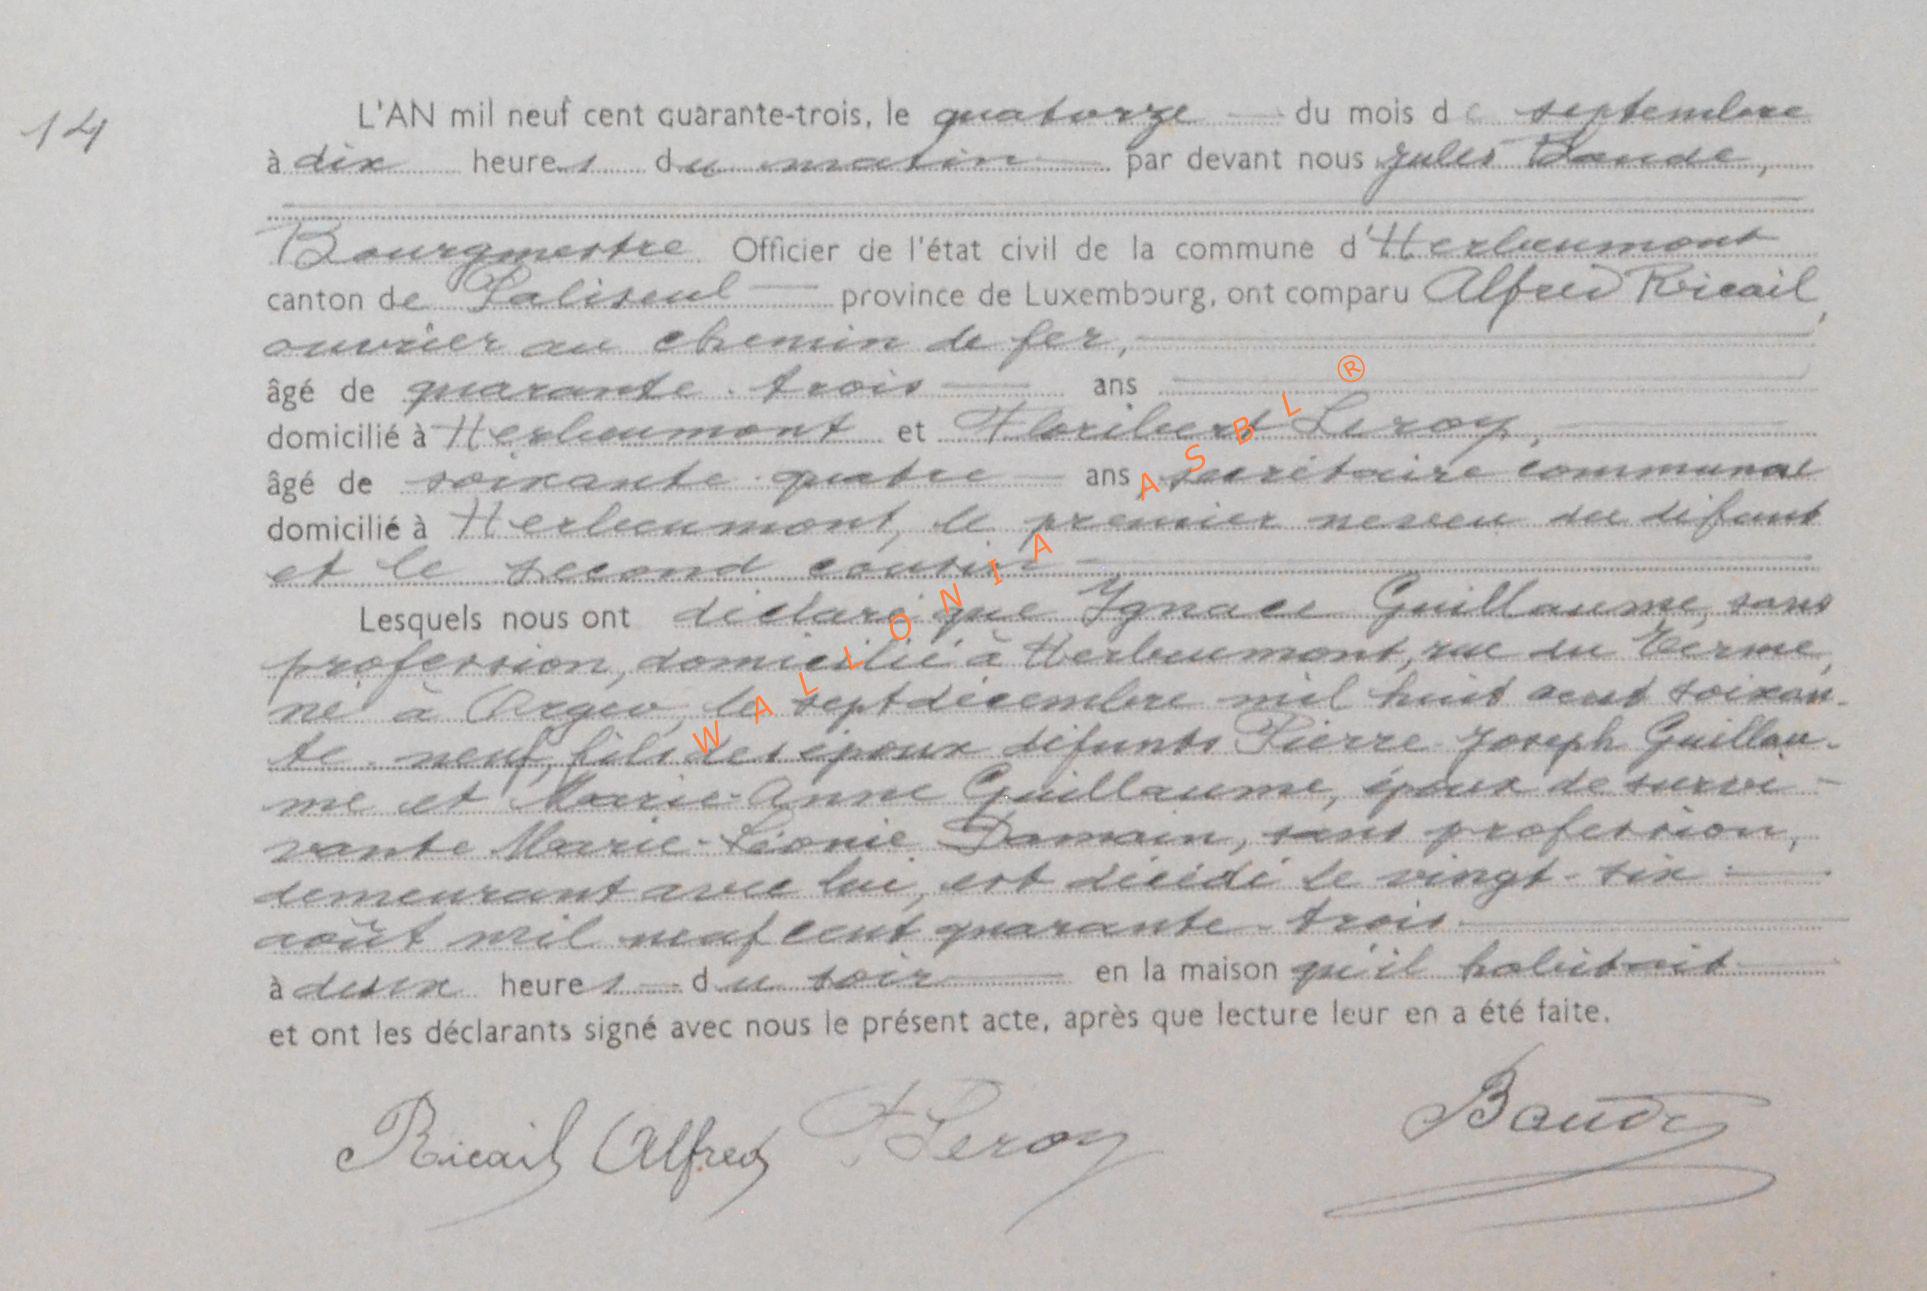 14
L'AN mil neuf cent quarante-trois, le quatorze — du mois de septembre
à dix heures du matin — par devant nous Jules Baude,
Bourgmestre Officier de l'état civil de la commune d'Herbeumont
canton de Paliseul — province de Luxembourg, ont comparu Alfred Ricail,
ouvrier au chemin de fer, —
âgé de quarante-trois — ans —
domicilié à Herbeumont et Floribert Leroy, —
âgé de soixante-quatre — ans secrétaire communal
domicilié à Herbeumont, le premier neveu du défunt
et le second cousin —
Lesquels nous ont déclaré que Ignace Guillaume, sans
profession, domicilié à Herbeumont, rue du Terme,
né à Orgeo, le sept décembre mil huit cent soixan-
te-neuf, fils des époux défunts Pierre-Joseph Guillau-
me et Marie-Anne Guillaume, époux de survi-
vante Marie-Léonie Damain, sans profession,
demeurant avec lui, est décédé le vingt-six —
août mil neuf cent quarante-trois —
à deux heures — du soir — en la maison qu'il habitait —
et ont les déclarants signé avec nous le présent acte, après que lecture leur en a été faite.
Ricail Alfred F Leroy Baude
WALLONIA ASBL ®